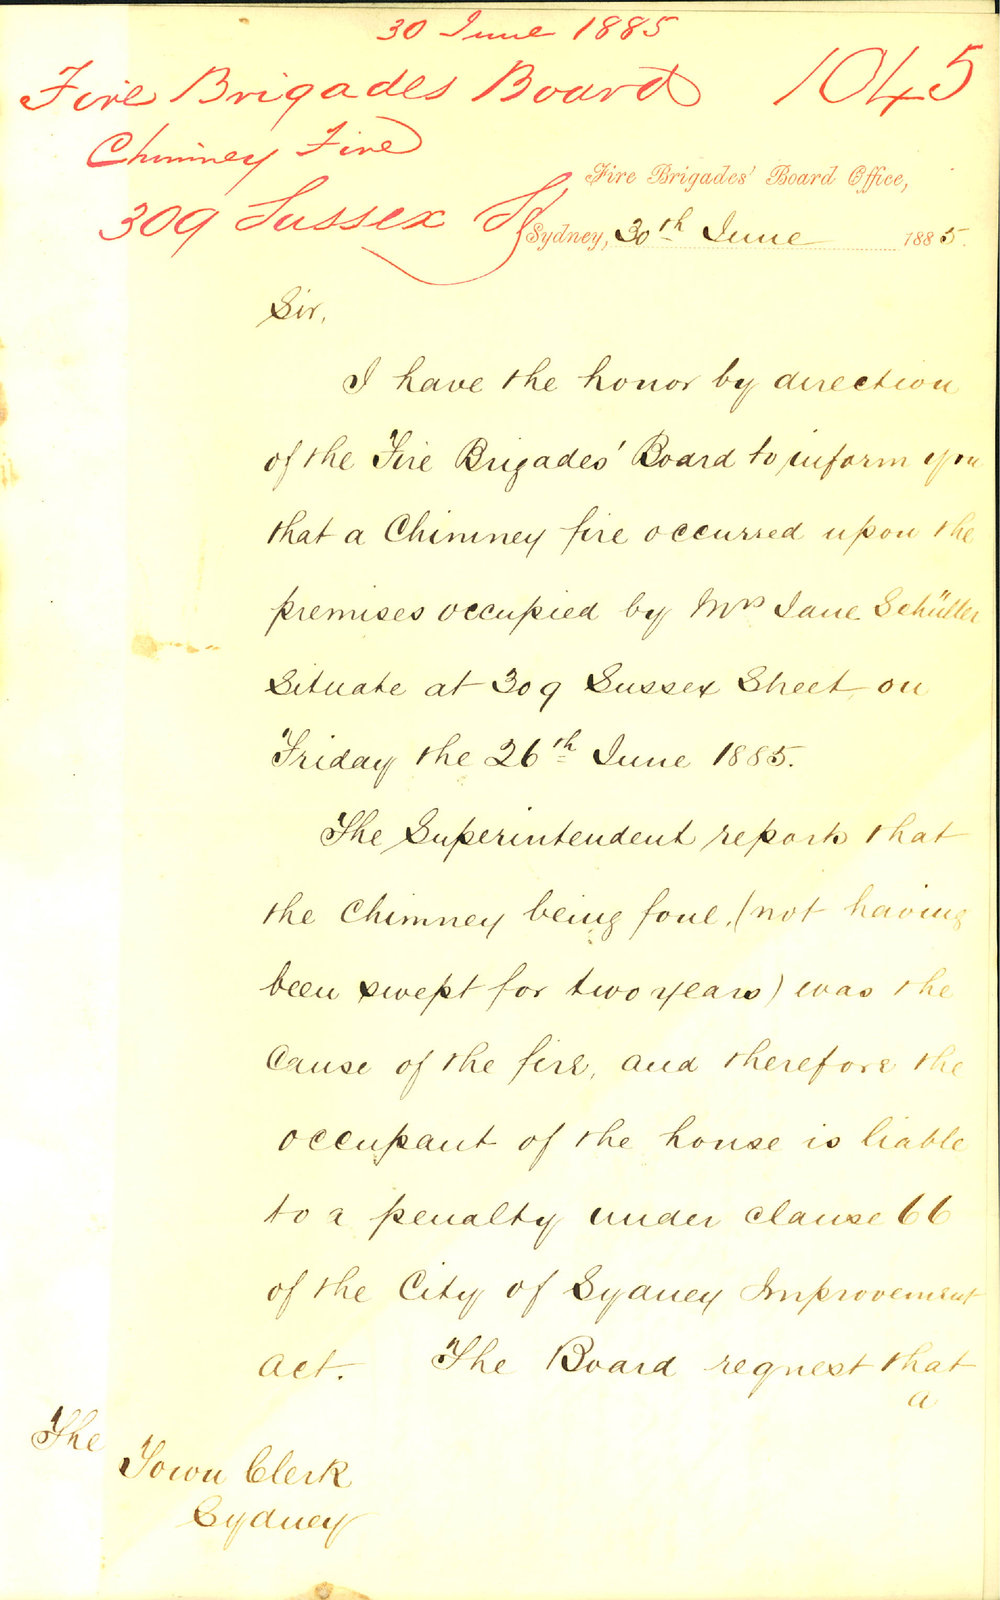 30 June 1885
Fire Brigades Board 1045
Chimney Fire
309 Sussex St
Fire Brigades' Board Office,
Sydney, 30th June 1885.
Sir,
I have the honor by direction
of the Fire Brigades' Board to inform you
that a Chimney fire occurred upon the
premises occupied by Mrs Jane Schüller
Situate at 309 Sussex Street on
Friday the 26th June 1885.
The Superintendent reports that
the Chimney being foul, (not having
been swept for two years) was the
Cause of the fire, and therefore the
occupant of the house is liable
to a penalty under clause 66
of the City of Sydney Improvement
Act. The Board request that
a
The
Town Clerk
Sydney